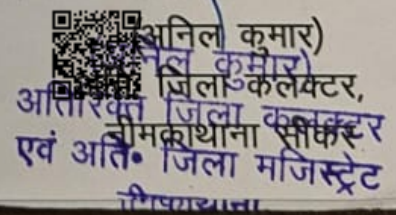 (अनिल कुमार)
जिला कलेक्टर,
अतिरिक्त जिला कलक्टर
नीमकाथाना सीकर
एवं अति॰ जिला मजिस्ट्रेट